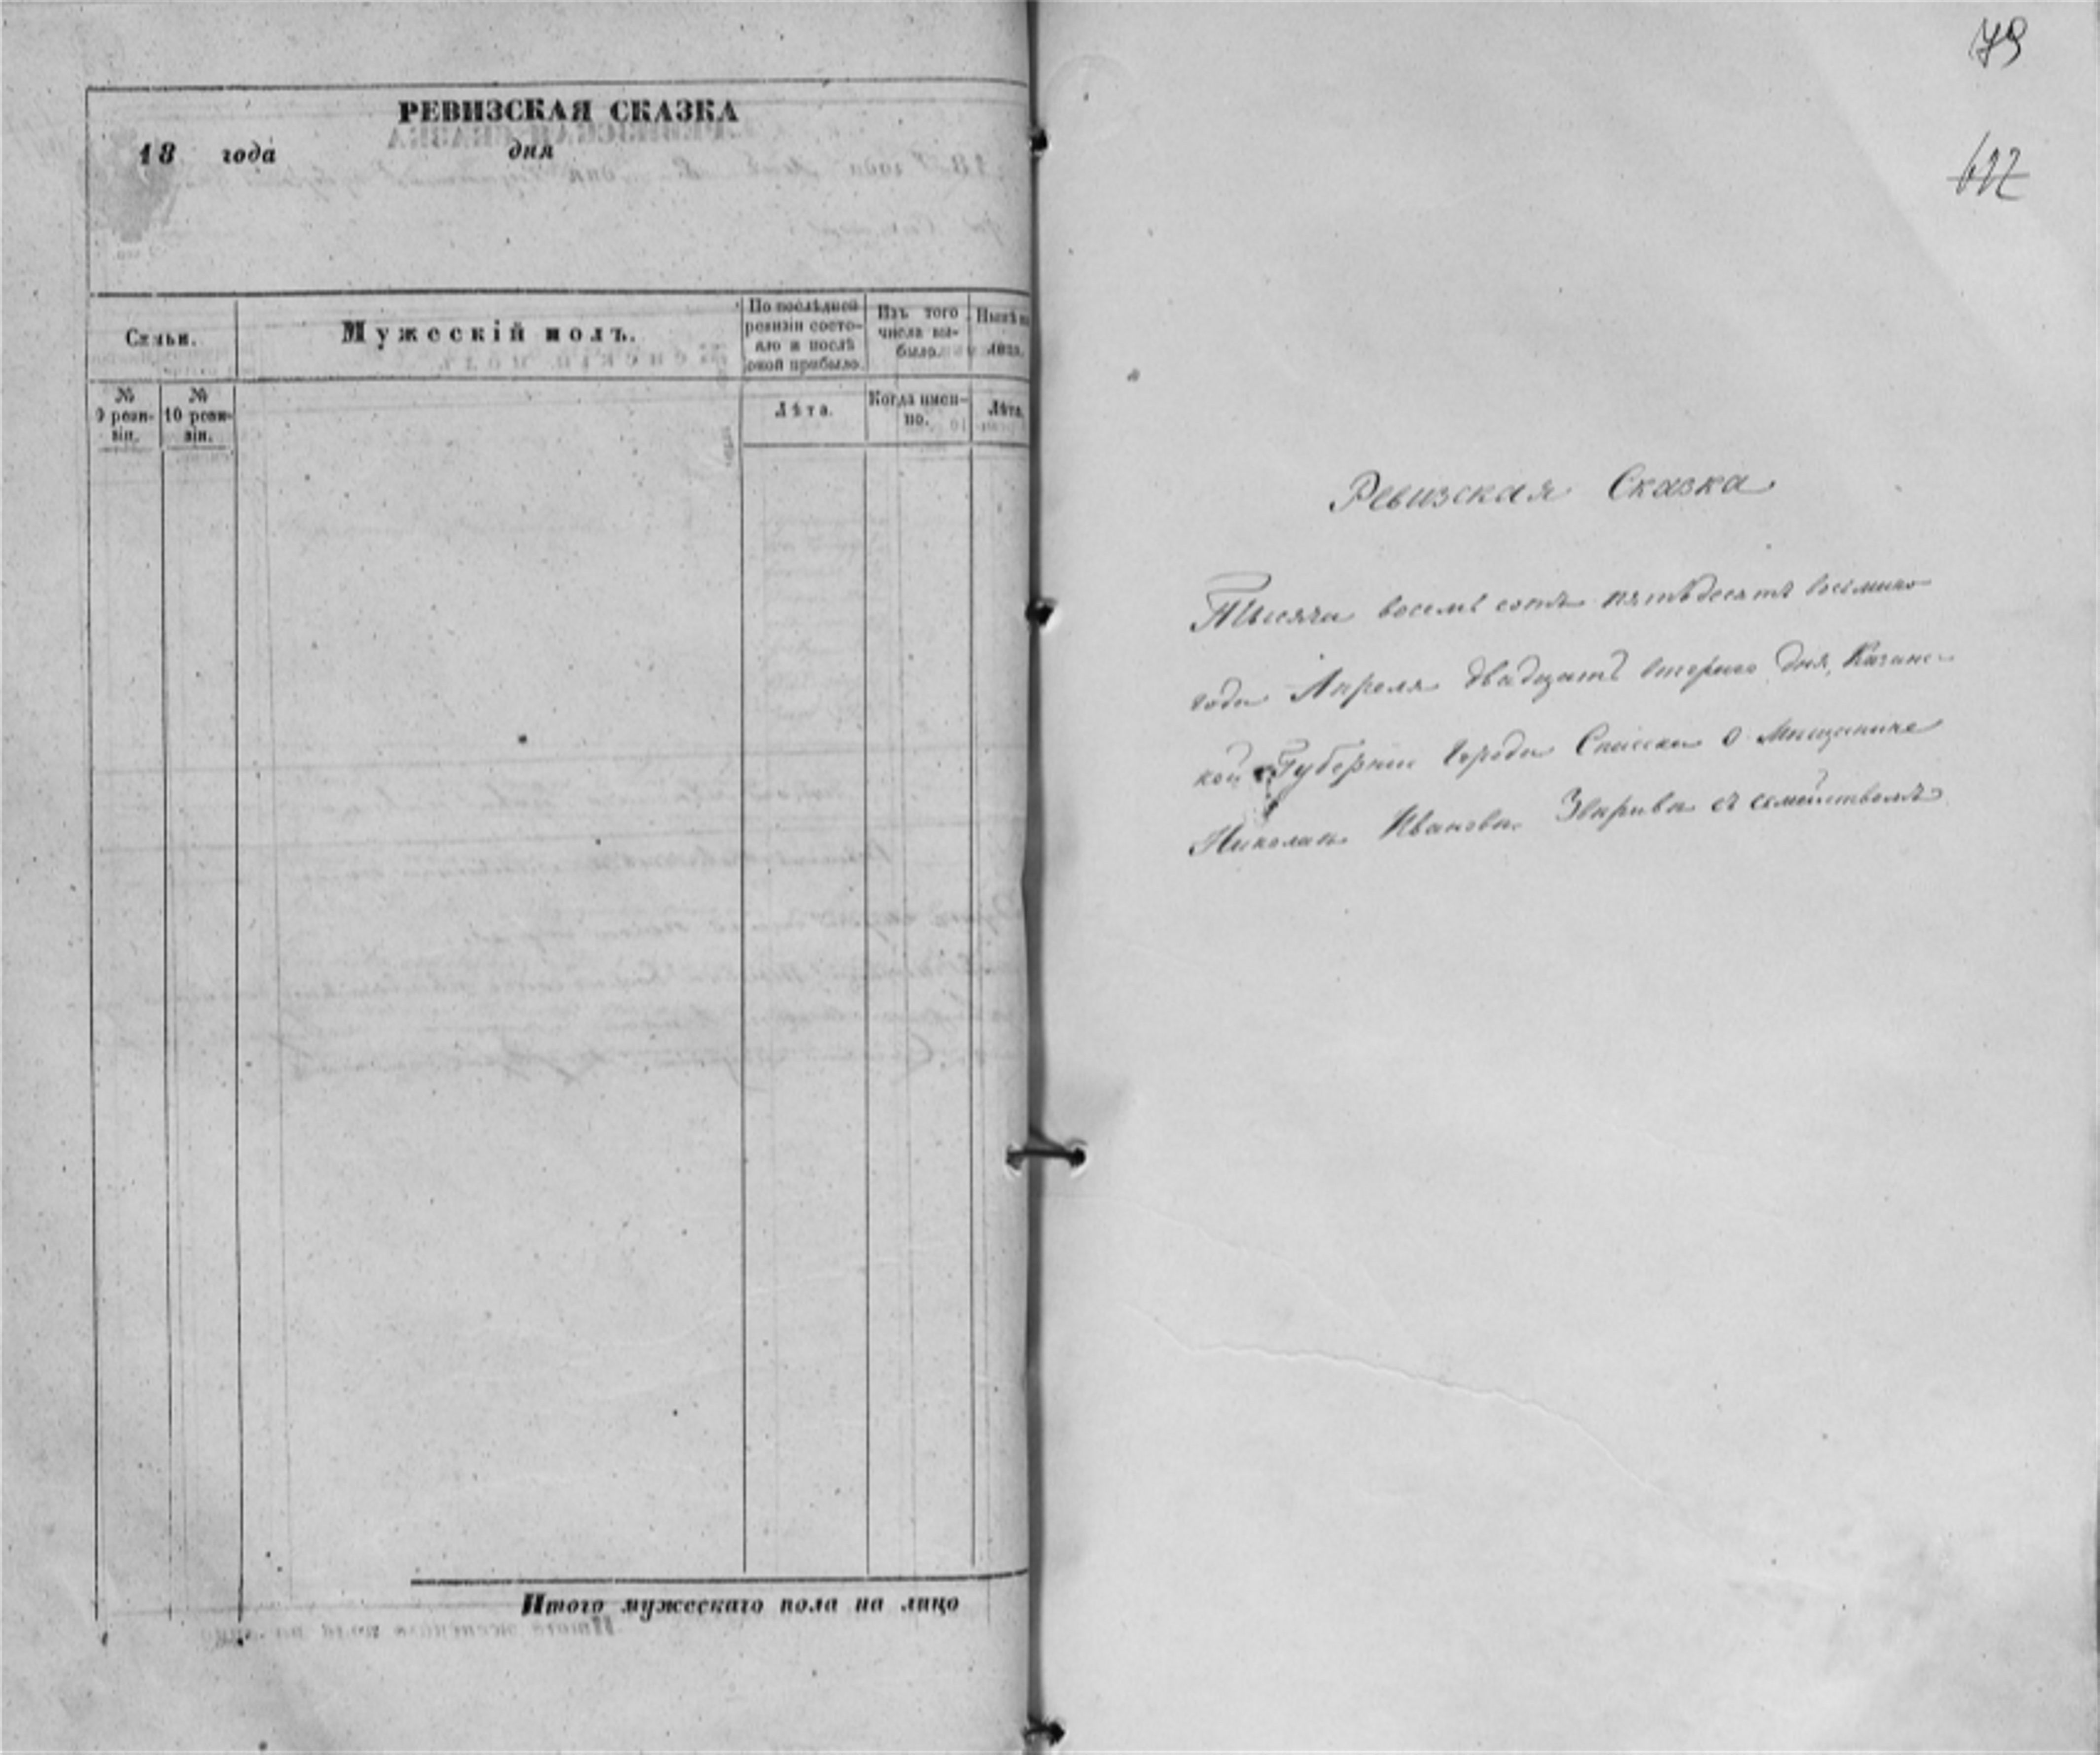 РЕВИЗСКАЯ СКАЗКА
18 года дня
Семьи.
Мужескій полъ.
По послѣдней ревизіи состояло и послѣ оной прибыло.
Изъ того числа выбыло.
Нынѣ на лицо.
№ 9 ревизіи.
№ 10 ревизіи.
Лѣта.
Когда именно.
Лѣта.
Итого мужескаго пола на лицо
79
Ревизская Сказка
Тысяча восемь сотъ пятьдесятъ восьмаго
года Апреля двадцать втораго дня, Казанс-
кой Губерніи города Спасска о Мещанине
Николае Иванове съ семействомъ